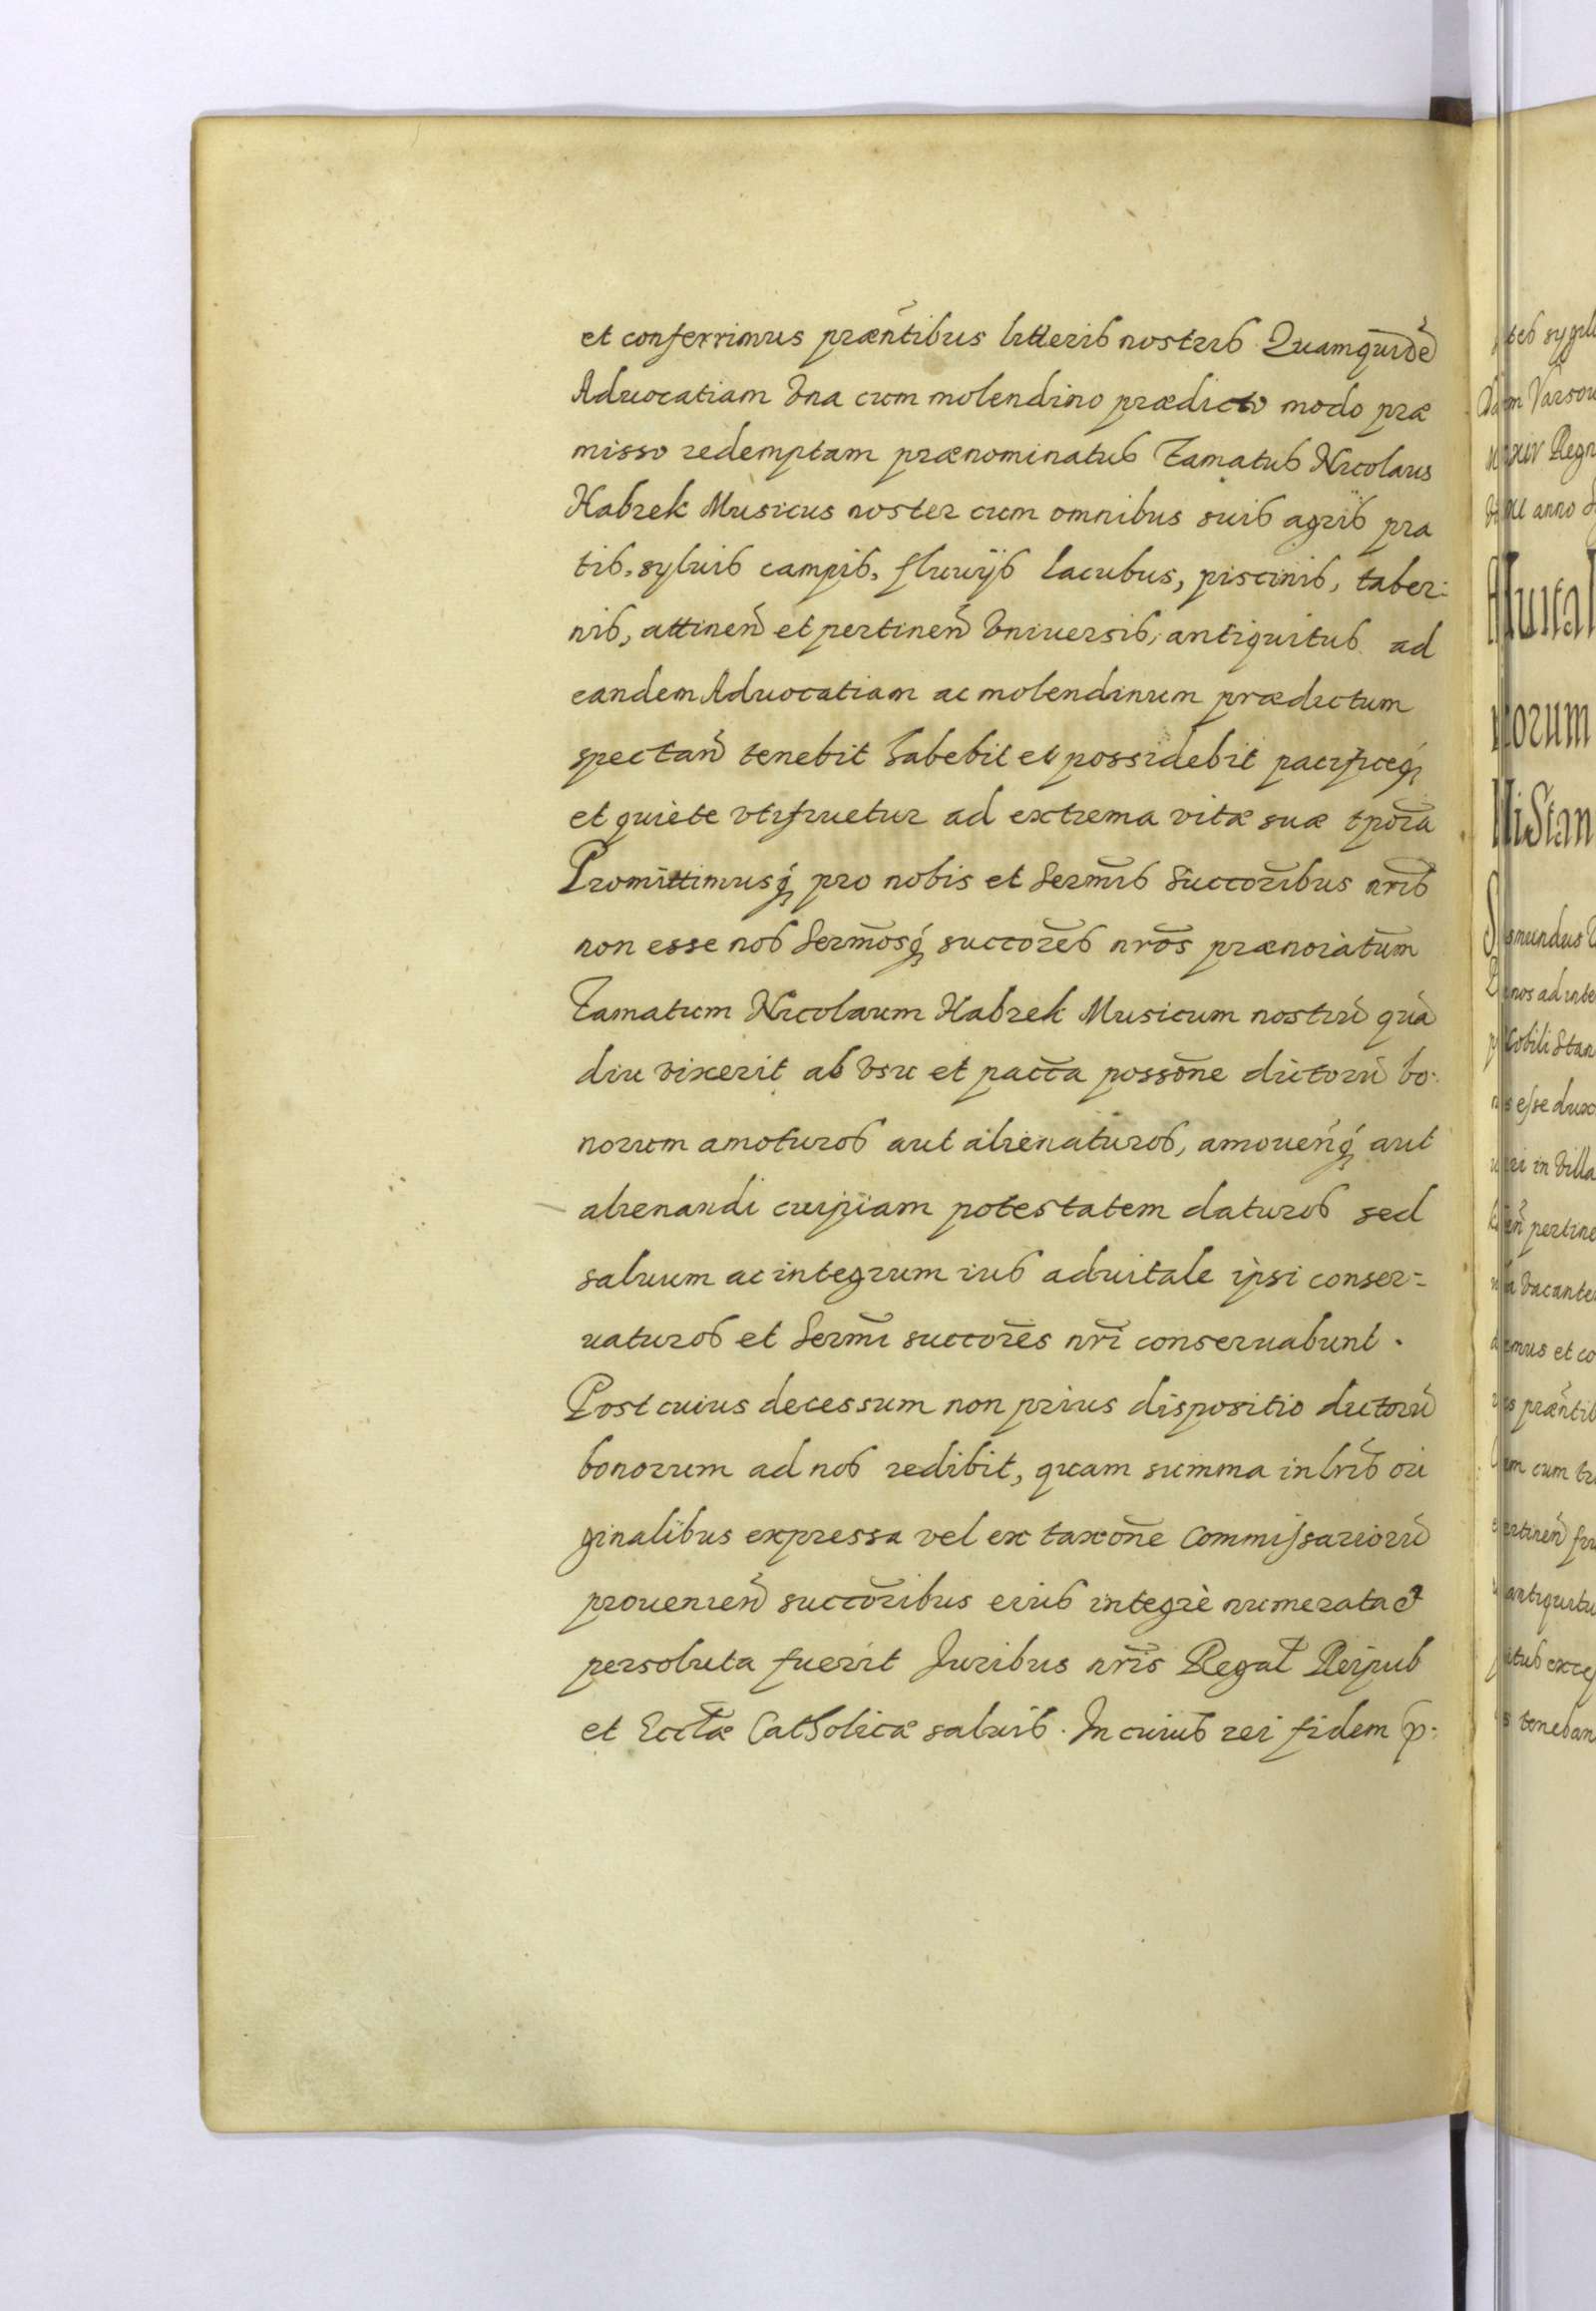 et conferrimus præñtibus litteris nostris Quamquidē
Aduocatiam Vna cum molendino prædicto modo præ
misso redemptam prænominatus Famatus Nicolaus
Habrek Musicus noster cum omnibus suis agris pra
tis, syluis campis, fluuijs lacubus, piscinis, taber-
nis, attineñ et pertineñ Vniuersis, antiquitus ad
eandem Aduocatiam ac molendinum prædictum
spectañ tenebit habebit et possidebit pacificeq
et quiete vtifruetur ad extrema vitæ suæ tpōra
Promittimusq pro nobis et Sermīs Succorībus nrīs
non esse nos Sermōsq succorēs nrōs prænoīatum
Famatum Nicolaum Habrek Musicum nostrū quā
diu vixerit ab Vsu et paccā possōne dictorū bo-
norum amoturos aut alienaturos, amoueñq aut
alienandi cuipiam potestatem daturos sed
saluum ac integrum ius aduitale ipsi conser=
uaturos et Sermī succorēs nrī conseruabunt.
Post cuius decessum non prius dispositio dictorū
bonorum ad nos redibit, quam summa in lrīs ori
ginalibus expressa vel ex taxōne Commissariorū
prouenieñ succorībus eius integrè numerata et
persoluta fuerit Iuribus nrīs Regal Reipub
et Ecclæ Catholicæ saluis. In cuius rei fidem p-